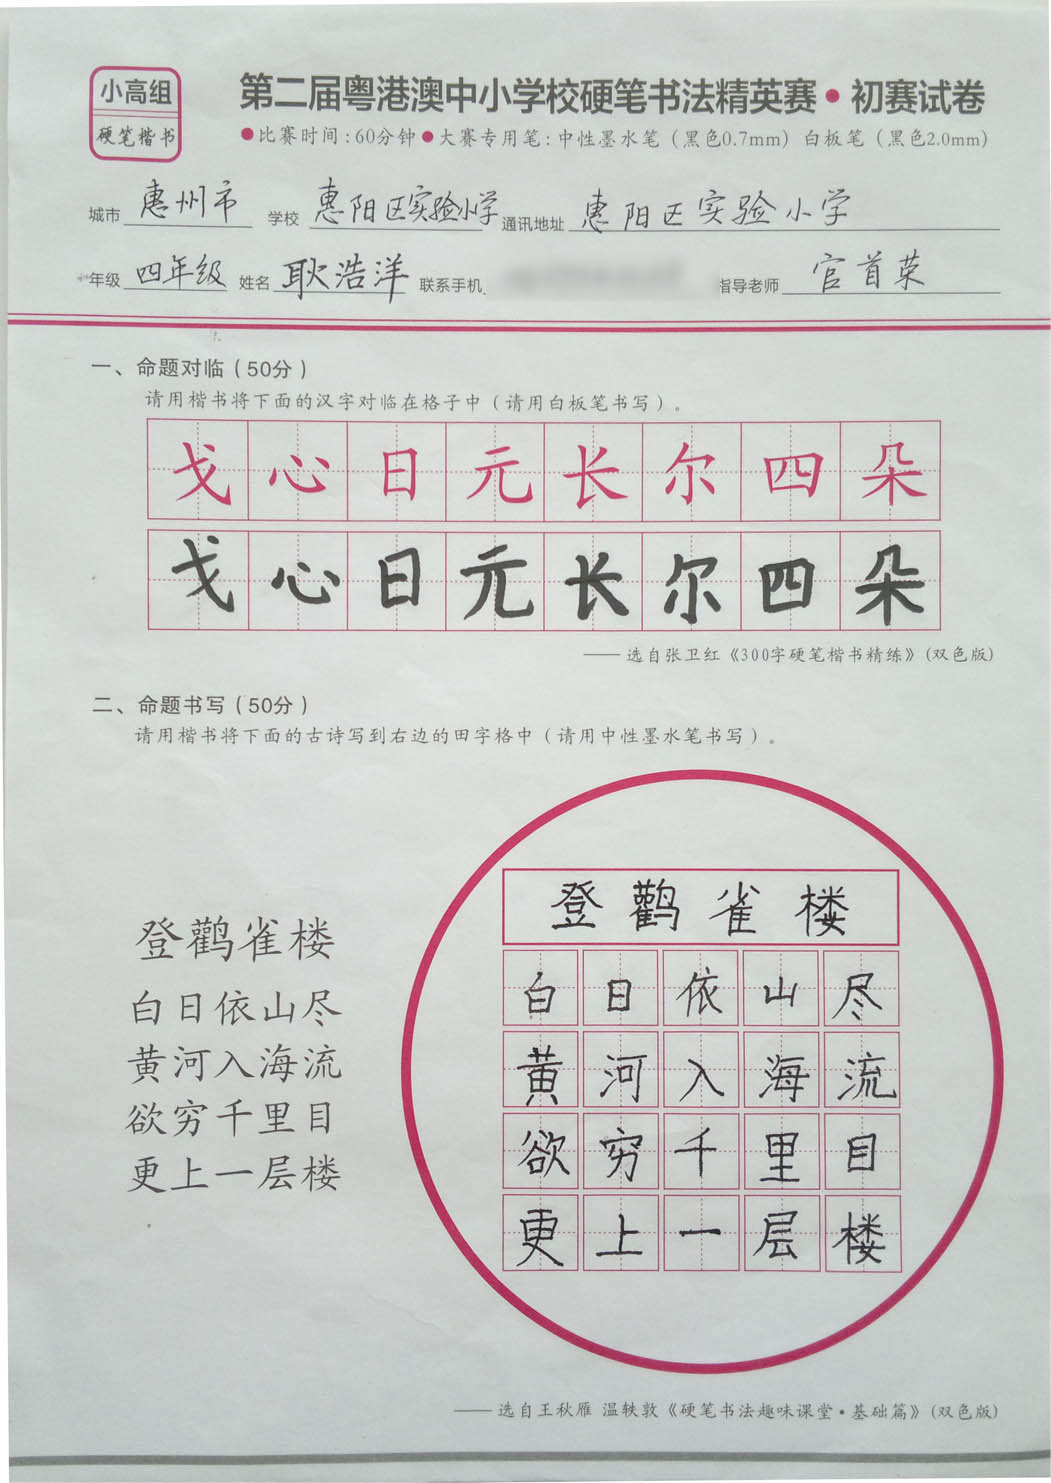 小高组
硬笔楷书
第二届粤港澳中小学校硬笔书法精英赛•初赛试卷
●比赛时间:60分钟●大赛专用笔:中性墨水笔（黑色0.7mm）白板笔（黑色2.0mm）
城市 惠州市 学校 惠阳区实验小学 通讯地址 惠阳区实验小学
年级 四年级 姓名 耿浩洋 联系手机 指导老师 官首荣
一、命题对临（50分）
请用楷书将下面的汉字对临在格子中（请用白板笔书写）。
戈心日元长尔四朵
戈心日元长尔四朵
——选自张卫红《300字硬笔楷书精练》(双色版)
二、命题书写（50分）
请用楷书将下面的古诗写到右边的田字格中（请用中性墨水笔书写）。
登鹳雀楼
白日依山尽
黄河入海流
欲穷千里目
更上一层楼
登鹳雀楼
白日依山尽
黄河入海流
欲穷千里目
更上一层楼
——选自王秋雁 温轶敦《硬笔书法趣味课堂·基础篇》(双色版)